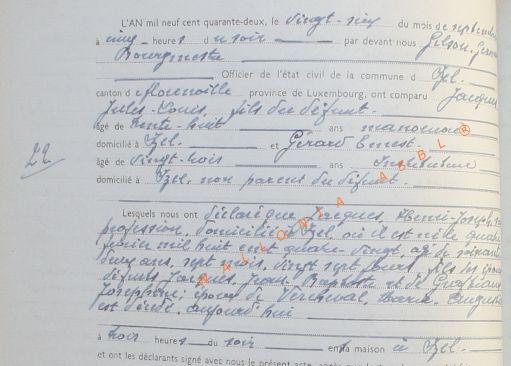 L'AN mil neuf cent quarante-deux, le vingt-six du mois de septembre
à cinq heures du soir par devant nous Gilson,
Bourgmestre
Officier de l'état civil de la commune d Izel
canton d Florenville province de Luxembourg, ont comparu Jacques
Jules-Louis, fils du défunt
âgé de trente-huit ans manoeuvre
domicilié à Izel et Gérard Ernest
âgé de vingt-trois ans Instituteur
domicilié à Izel, non parent du défunt.
22
Lesquels nous ont déclaré que Jacques, Henri-Joseph, sans
profession, domicilié à Izel, où il est né le quatre
février mil huit cent quatre-vingt, âgé de soixante
deux ans, sept mois, vingt sept jours, fils des époux
défunts Jacques, Jean-Baptiste et de
Joséphine, époux de Vercheval, Maria,
est décédé, aujourd'hui
à trois heures du soir en sa maison à Izel
et ont les déclarants signé avec nous le présent acte, après
WALLONIA ASBL ®